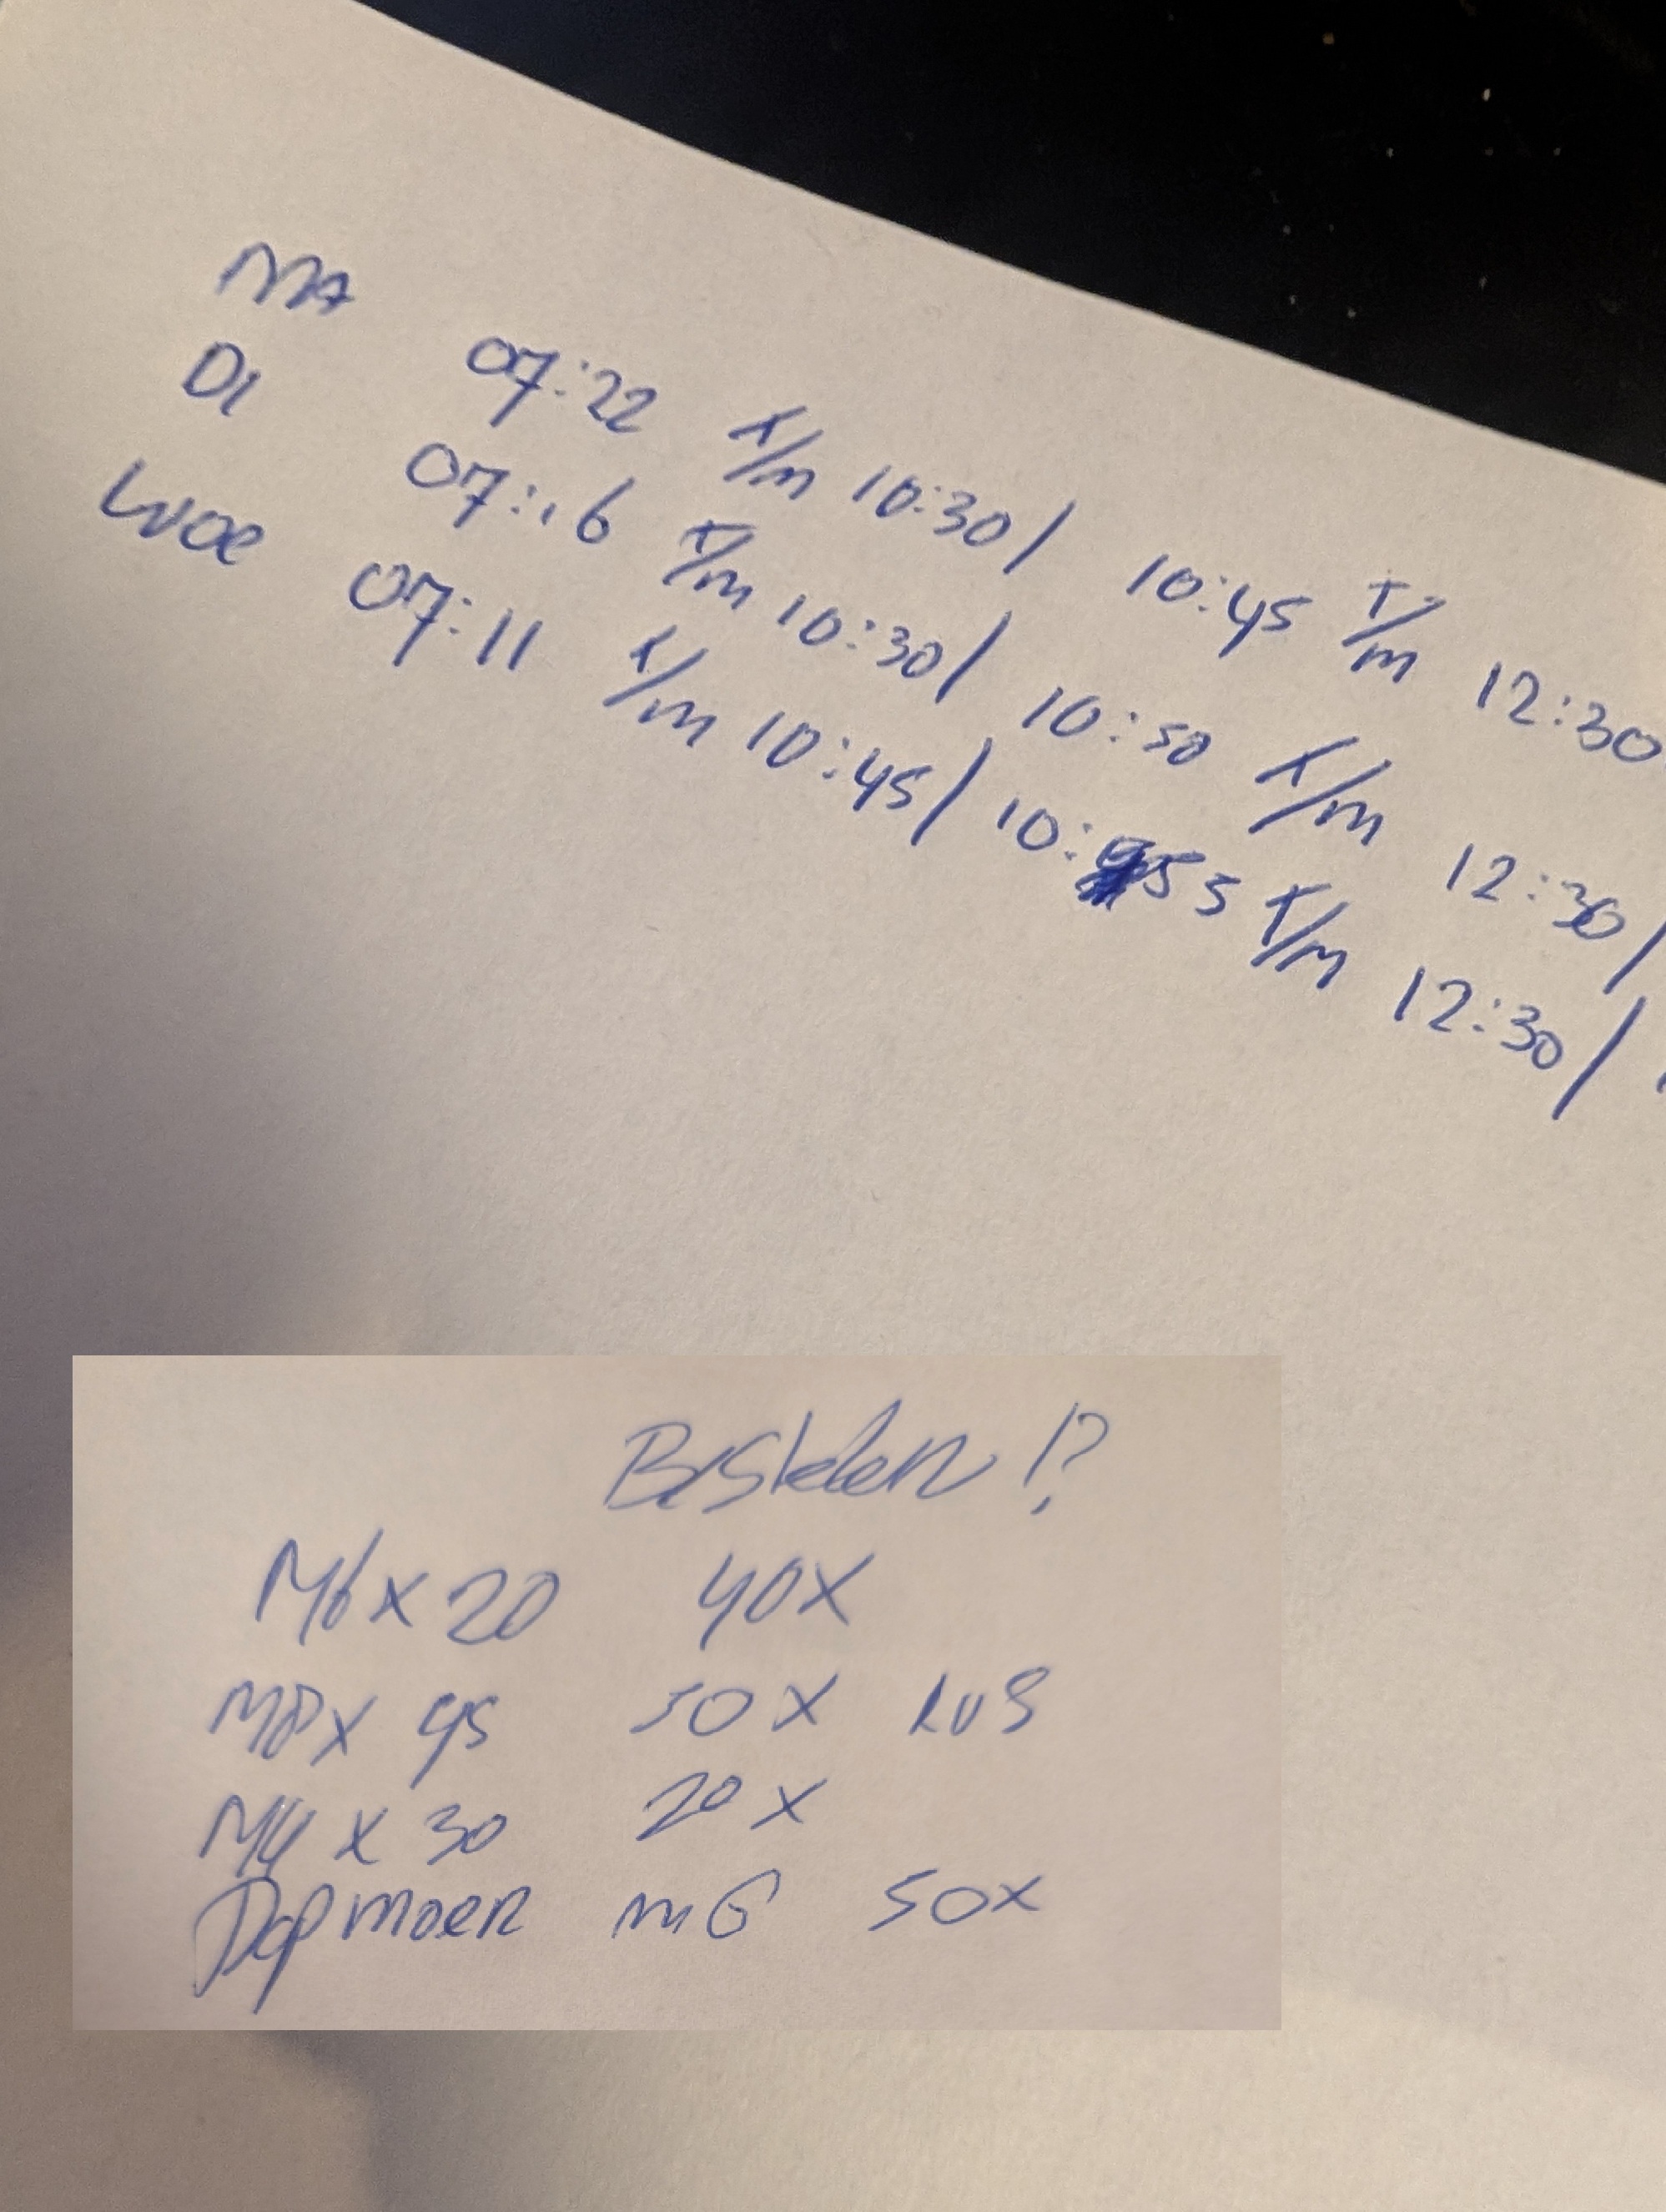 MA 07:22 T/m 10:30 / 10:45 T/m 12:30
DI 07:16 T/m 10:30 / 10:50 T/m 12:30 /
WOE 07:11 T/m 10:45 / 10:55 T/m 12:30 /
Bestelen !?
M6 x 20 40x
M8 x 45 50x RVS
M4 x 30 20x
Dopmoer m6 50x